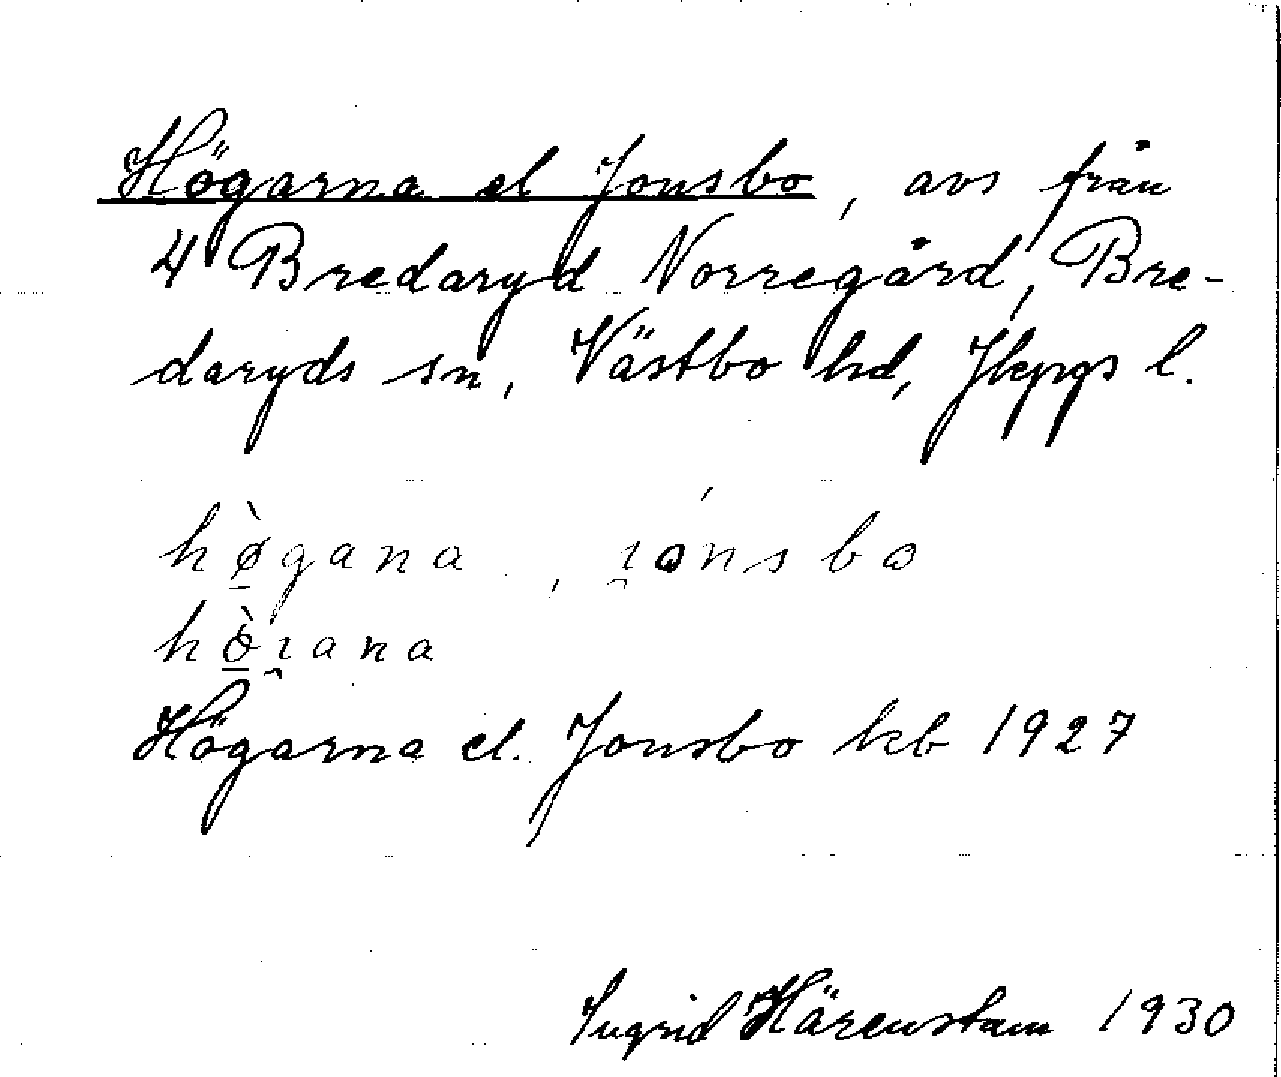 Högarna el Jonsbo, avs från
4 Bredaryd Norregård, Bre-
daryds sn, Västbo hd, Jkpgs l.
hø̀gana, ı̯ónsbo
hö̀ı̯ana
Högarna el. Jonsbo kb 1927
Ingrid Härenstam 1930